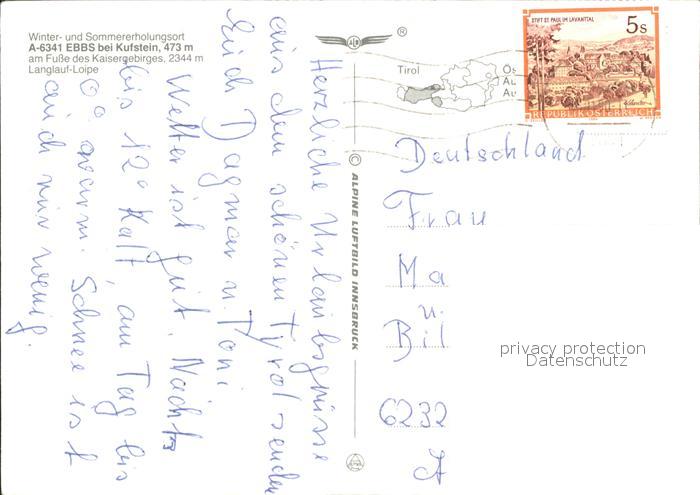 Winter- und Sommererholungsort
A-6341 EBBS bei Kufstein, 473 m
am Fuße des Kaisergebirges, 2344 m
Langlauf-Loipe
Herzliche Urlaubsgrüsse
aus dem schönen Tyrol senden
Euch Dagmar u. Toni
Wetter ist gut, Nachts
bis 12° Kalt, am Tag bis
0° warm. Schnee ist
auch nur wenig.
© ALPINE LUFTBILD INNSBRUCK
®
Tirol
STIFT ST. PAUL IM LAVANTTAL
5s
REPUBLIK ÖSTERREICH
Deutschland
Frau
Ma
u.
Bil
6232
privacy protection
Datenschutz